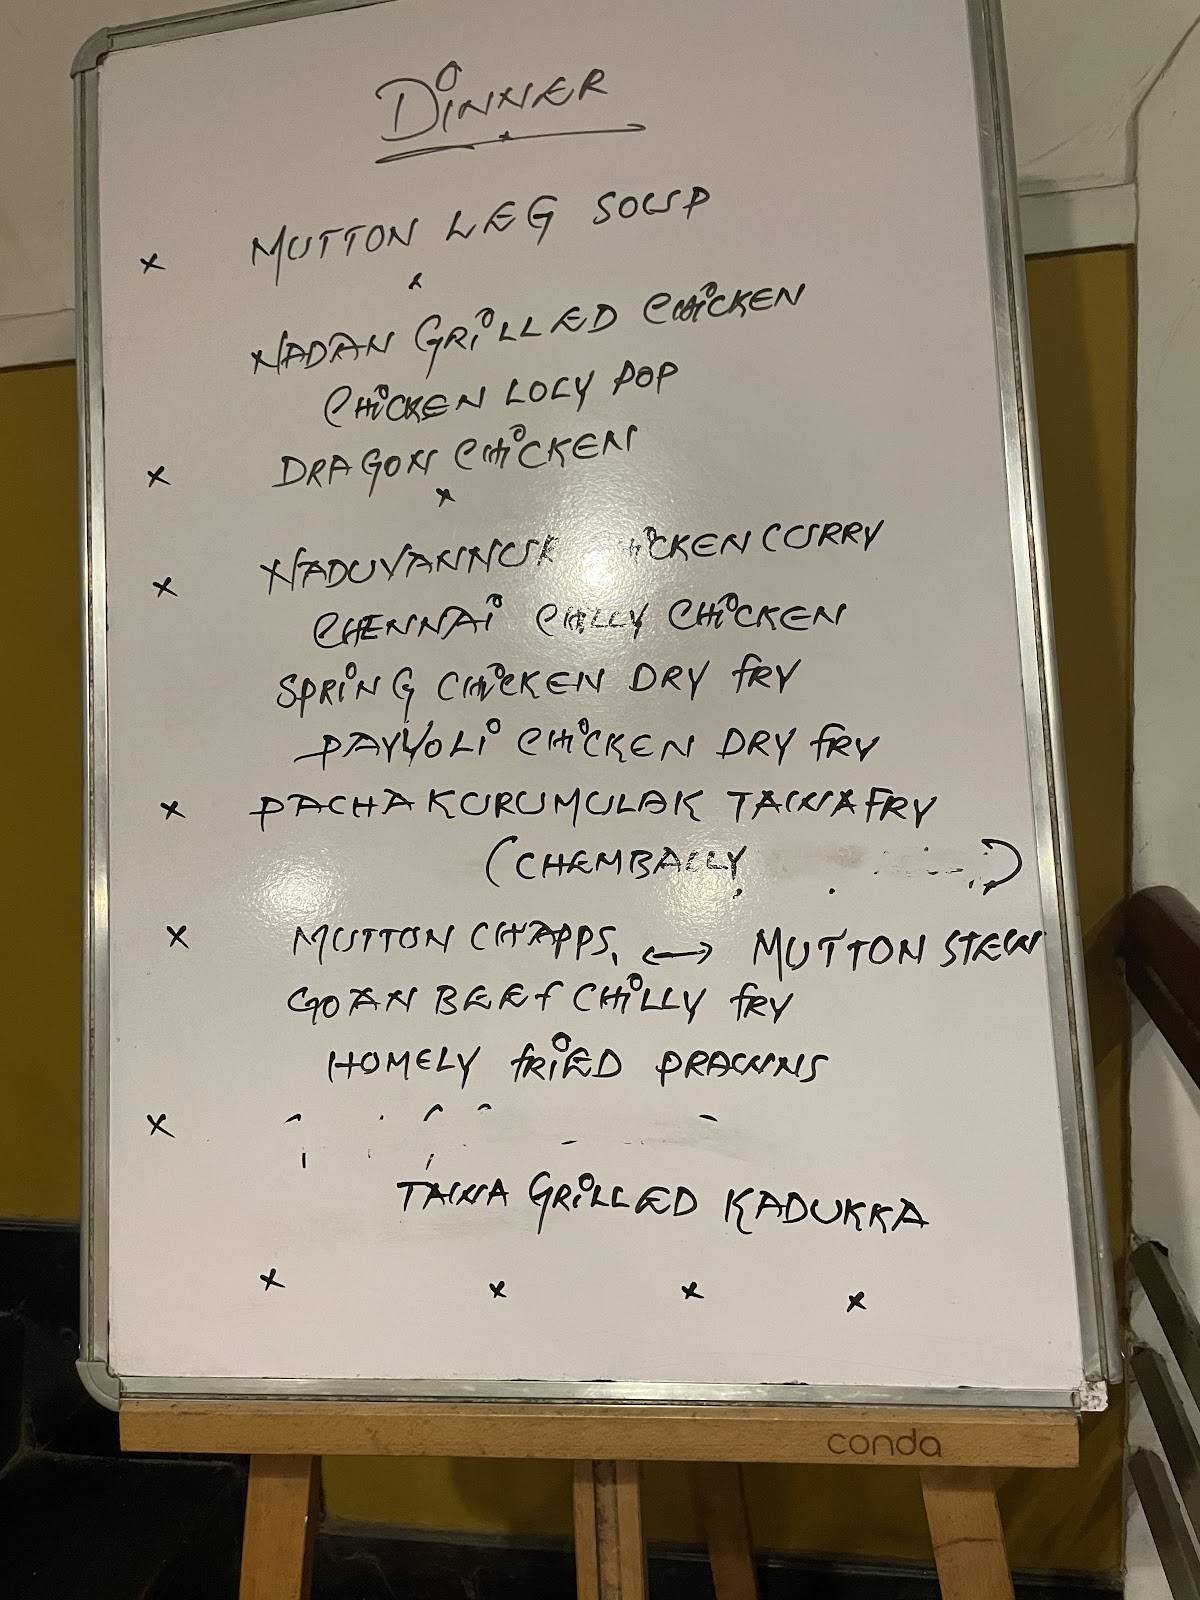 DINNER
x MUTTON LEG SOUP
x
NADAN GRILLED CHICKEN
CHICKEN LOLY POP
x DRAGON CHICKEN
x
x NADUVANNUR CHICKEN CURRY
CHENNAI CHILLY CHICKEN
SPRING CHICKEN DRY FRY
PAYYOLI CHICKEN DRY FRY
x PACHA KURUMULAK TAWA FRY
(CHEMBALLY, )
x MUTTON CHAPPS, <-> MUTTON STEW
GOAN BEEF CHILLY FRY
HOMELY FRIED PRAWNS
x
TAWA GRILLED KADUKKA
x x x x
conda